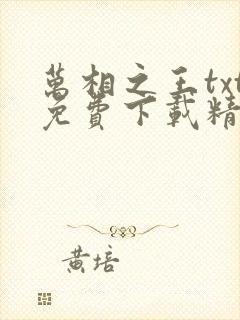 萬相之王txt
免費下載精
黃培